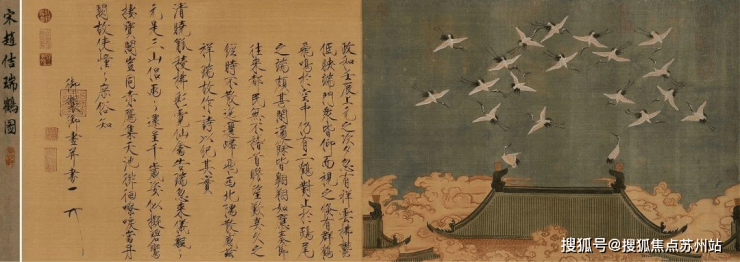 政和壬辰上元之次夕忽有祥雲拂鬱
低映端門衆皆仰而視之倏有群鶴
飛鳴於空中仍有二鶴對止於鴟尾
之端頗甚閒適餘皆翱翔如應奏節
往來都民無不稽首瞻望歎異久之
經時不散迤邐歸飛西北隅散感茲
祥瑞故作詩以紀其實
清曉觚稜拂彩霓仙禽告瑞忽來儀飄〻
元是三山侶兩〻還呈千歲姿似擬碧鸞
棲寶閣豈同赤雁集天池徘徊嘹唳當丹
闕故使憧〻庶俗知
御製御畫并書
宋趙佶瑞鶴圖
搜狐号@搜狐焦点苏州站